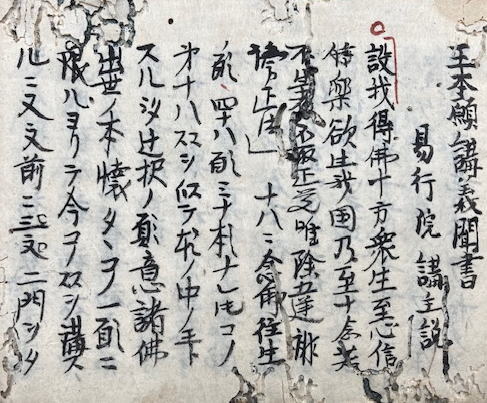 王本願ノ講義聞書
易行院講主説
設我得佛十方衆生至心信
楽欲生我国乃至十念若
不生者不取正覚唯除五逆誹
謗正法 十八ニ念佛往生
ノ願 四十八願ミナ本ナレ𪜈コノ
第十八
スル 択ノ願意諸佛
出世ノ本懐タヽコノ一願ニ
限ルヨリテ今コノ 講ス
ルニ又文前ニ 二門ンタ